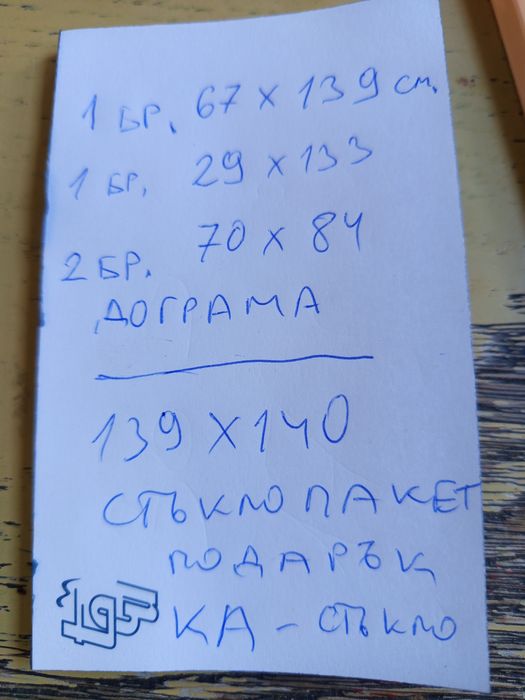 1 БР. 67 х 139 см.
1 БР. 29 х 133
2 БР. 70 х 84
ДОГРАМА
139 х 140
СТЪКЛОПАКЕТ
ПОДАРЪК
КА - СТЪКЛО